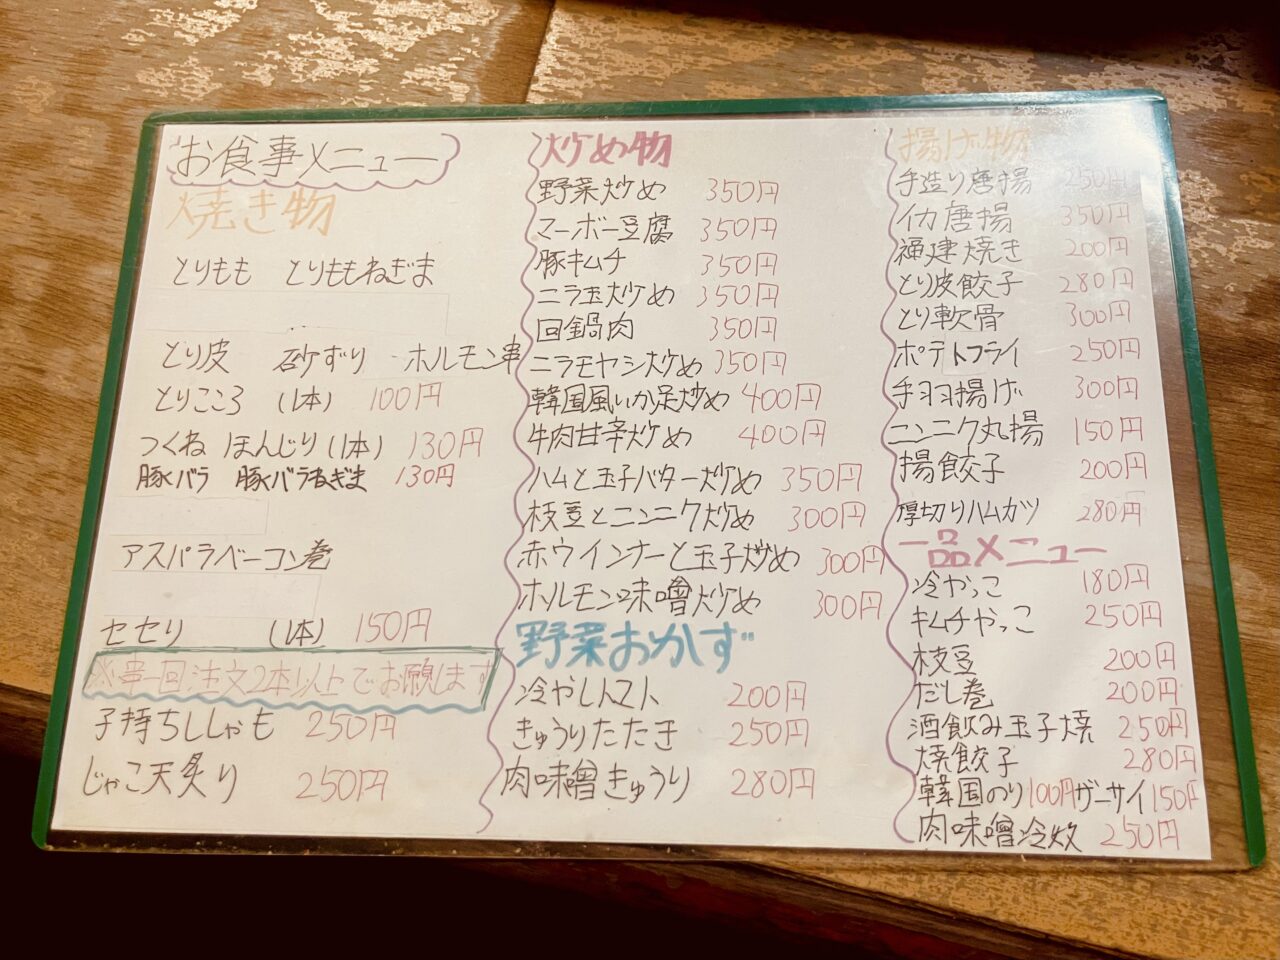 お食事メニュー
焼き物
とりもも とりももねぎま
とり皮 砂ずり ホルモン串
とりこころ (1本) 100円
つくね ぼんじり (1本) 130円
豚バラ 豚バラねぎま 130円
アスパラベーコン巻
セセリ (1本) 150円
※串一回注文2本以上でお願します
子持ちししゃも 250円
じゃこ天炙り 250円
炒め物
野菜炒め 350円
マーボー豆腐 350円
豚キムチ 350円
ニラ玉炒め 350円
回鍋肉 350円
ニラモヤシ炒め 350円
韓国風いか足炒め 400円
牛肉甘辛炒め 400円
ハムと玉子バター炒め 350円
枝豆とニンニク炒め 300円
赤ウインナーと玉子炒め 300円
ホルモン味噌炒め 300円
野菜おかず
冷やしトマト 200円
きゅうりたたき 250円
肉味噌きゅうり 280円
揚げ物
手造り唐揚 250円
イカ唐揚 350円
福建焼き 200円
とり皮餃子 280円
とり軟骨 300円
ポテトフライ 250円
手羽揚げ 300円
ニンニク丸揚 150円
揚餃子 200円
厚切りハムカツ 280円
一品メニュー
冷やっこ 180円
キムチやっこ 250円
枝豆 200円
だし巻 200円
酒飲み玉子焼 250円
焼餃子 280円
韓国のり 100円 ザーサイ 150円
肉味噌冷奴 250円